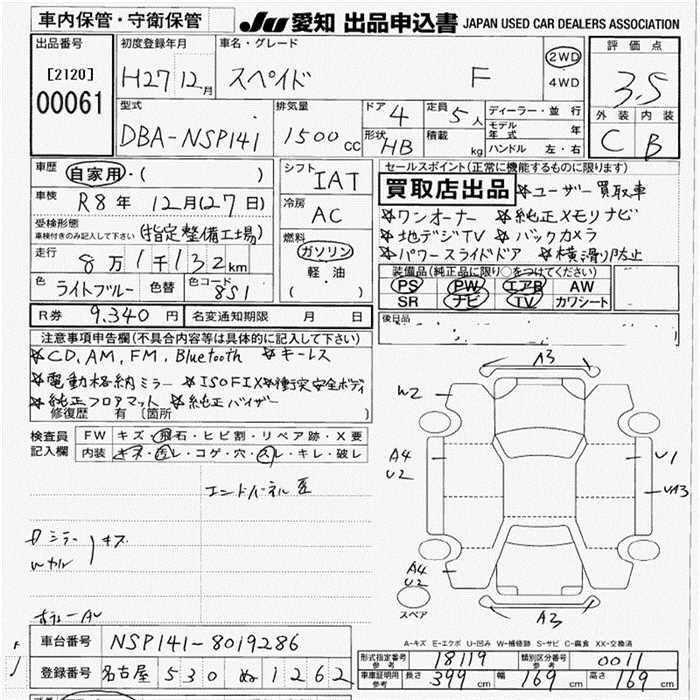 車内保管・守衛保管
JU 愛知 出品申込書 JAPAN USED CAR DEALERS ASSOCIATION
出品番号
[2120]
00061
初度登録年月
H27 12月
車名・グレード
スペイド F
2WD
4WD
評価点
3.5
外装 内装
C B
型式
DBA-NSP141
排気量
1500cc
ドア 4
形状 HB
定員 5人
積載 kg
ディーラー・並行
モデル年式 年
ハンドル 左・右
車歴
自家用・( )
車検
R8年 12月(27日)
受検形態
車検付きのみ記入して下さい (指定整備工場)
走行
8万1千132km
色 ライトブルー 色替 色コード 8S1
シフト
IAT
冷房
AC
燃料
ガソリン
軽油
( )
R券 9,340円 名変通知期限 月 日
セールスポイント(正常に機能するものに限ります)
買取店出品 ☆ユーザー買取車
☆ワンオーナー ☆純正メモリナビ
☆地デジTV ☆バックカメラ
☆パワースライドドア ☆横滑り防止
装備品(純正品に限り○をつけてください)
PS PW エアB AW
SR ナビ TV カワシート
後日品
注意事項申告欄(不具合内容等は具体的に記入して下さい)
☆CD,AM,FM,Bluetooth ☆キーレス
☆電動格納ミラー ☆ISOFIX ☆衝突安全ボディ
☆純正フロアマット ☆純正バイザー
修復歴 有 〔箇所
検査員記入欄
FW キズ・飛石・ヒビ割・リペア跡・X要
内装 キズ・汚レ・コゲ・穴・スレ・キレ・破レ
ミラー キズ
A3
W2
A4
U2
U1
A4
U2
A3
スペア
A-キズ E-エクボ U-凹み W-補修跡 S-サビ C-腐食 XX-交換済
車台番号 NSP141-8019286
登録番号 名古屋 530 ぬ 1262
形式指定番号 参考 18119 類別区分番号 参考 0011
車庫証明用 参考 長さ 399cm 幅 169cm 高さ 169cm